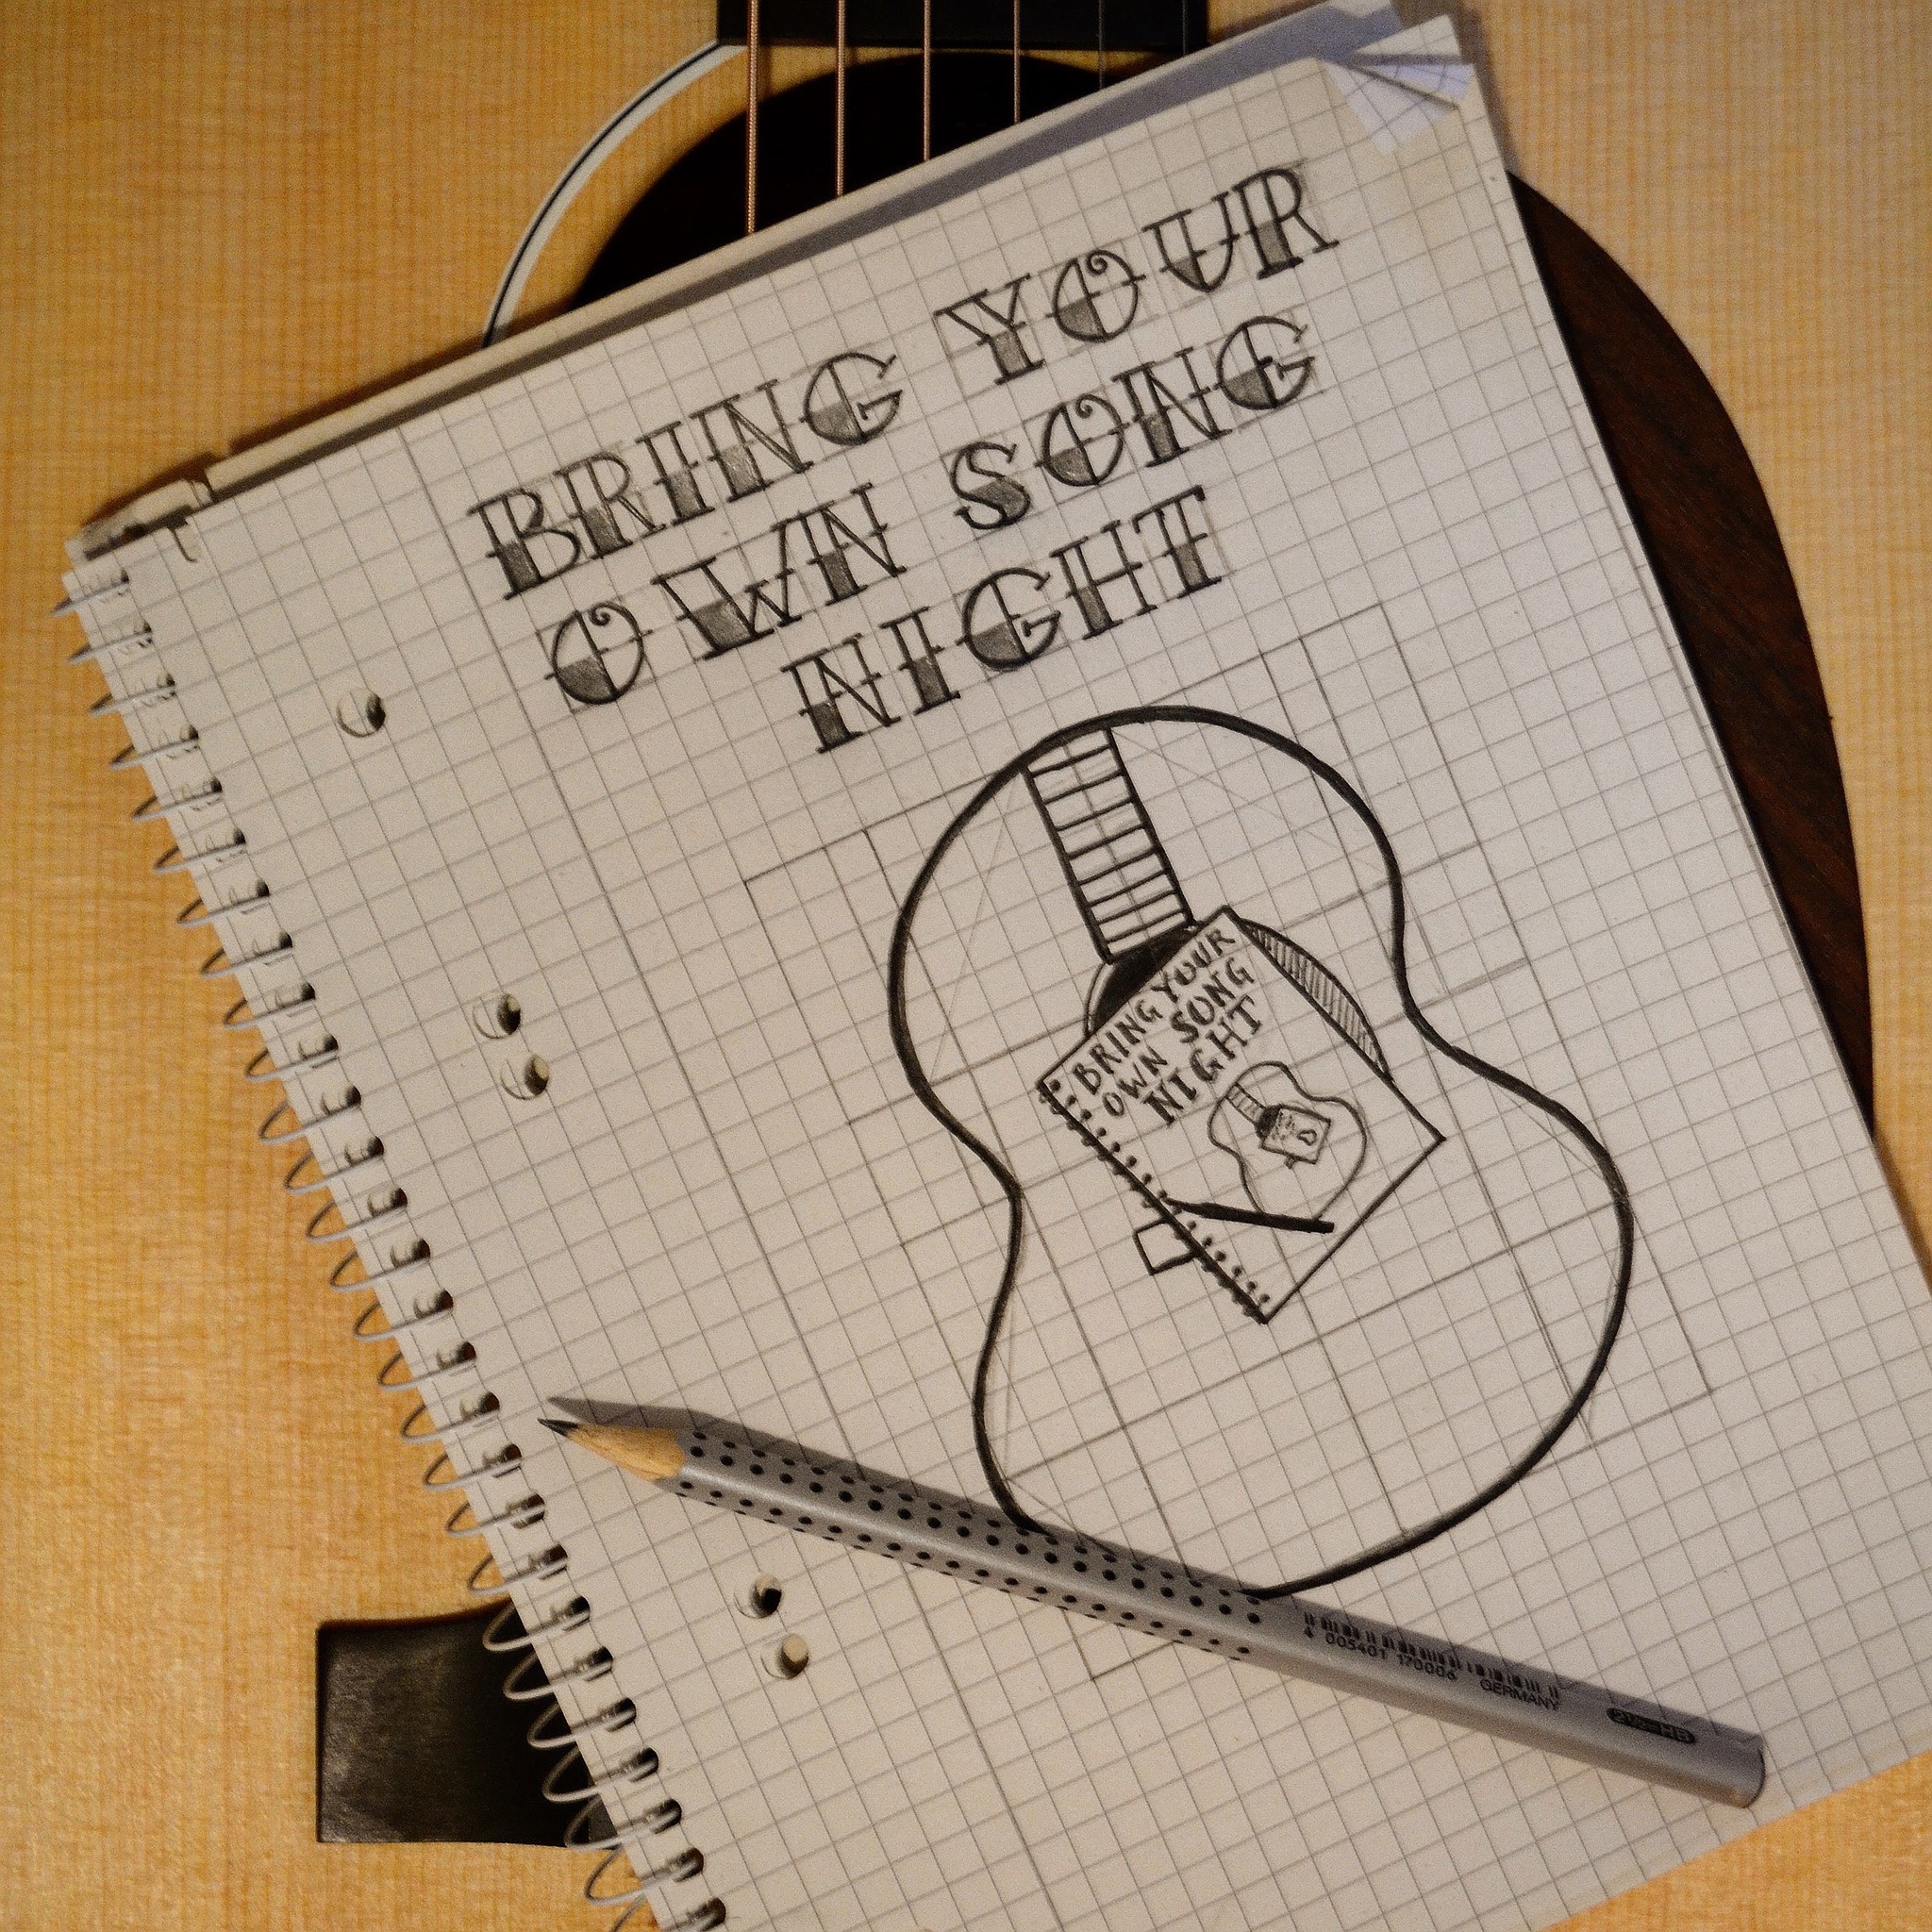 BRING YOUR
OWN SONG
NIGHT
BRING YOUR
OWN SONG
NIGHT
4 005401 170006 GERMANY
2½=HB